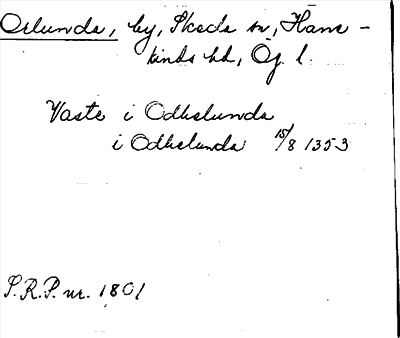 Orlunda, by, Skeda sn, Hane-
kinds hd, Ög. l.
Vaste i Odhslunda
i Odhslunda 15/8 1353
S.R.P. nr. 1801